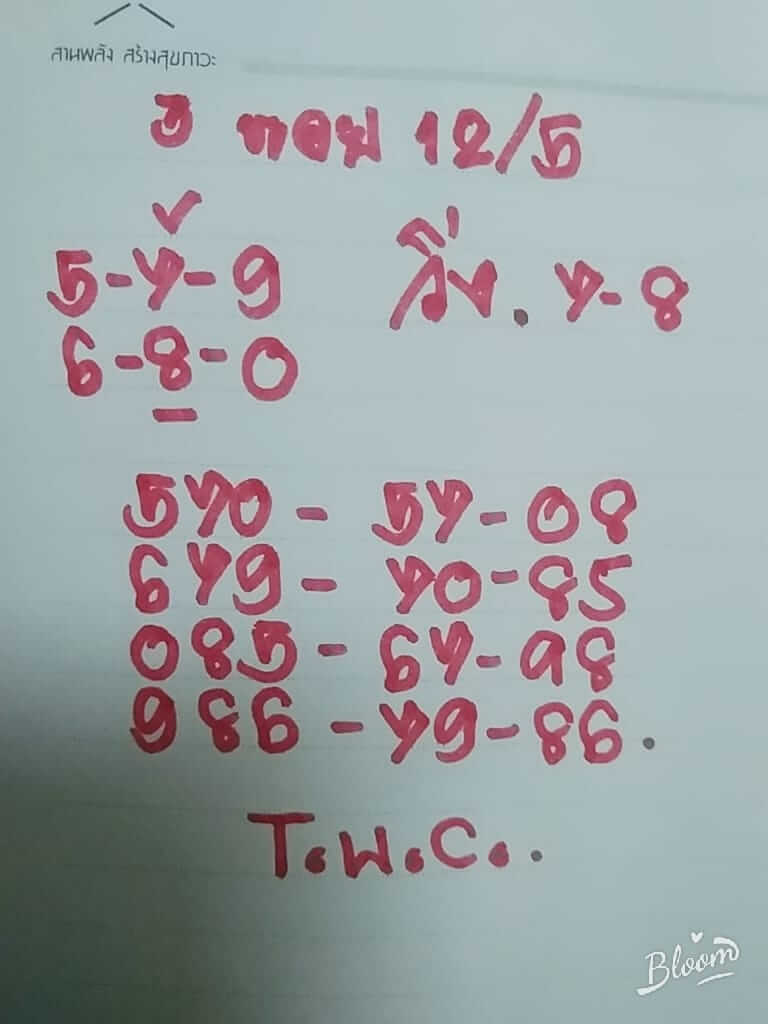 สานพลัง สร้างสุขภาวะ
ฮ ทอย 12/5
✓
5-7-9 วิ่ง. 7-8
6-8-0
570 - 57-08
679 - 70-85
085 - 67-98
986 - 79-86.
T.W.C..
Bloom